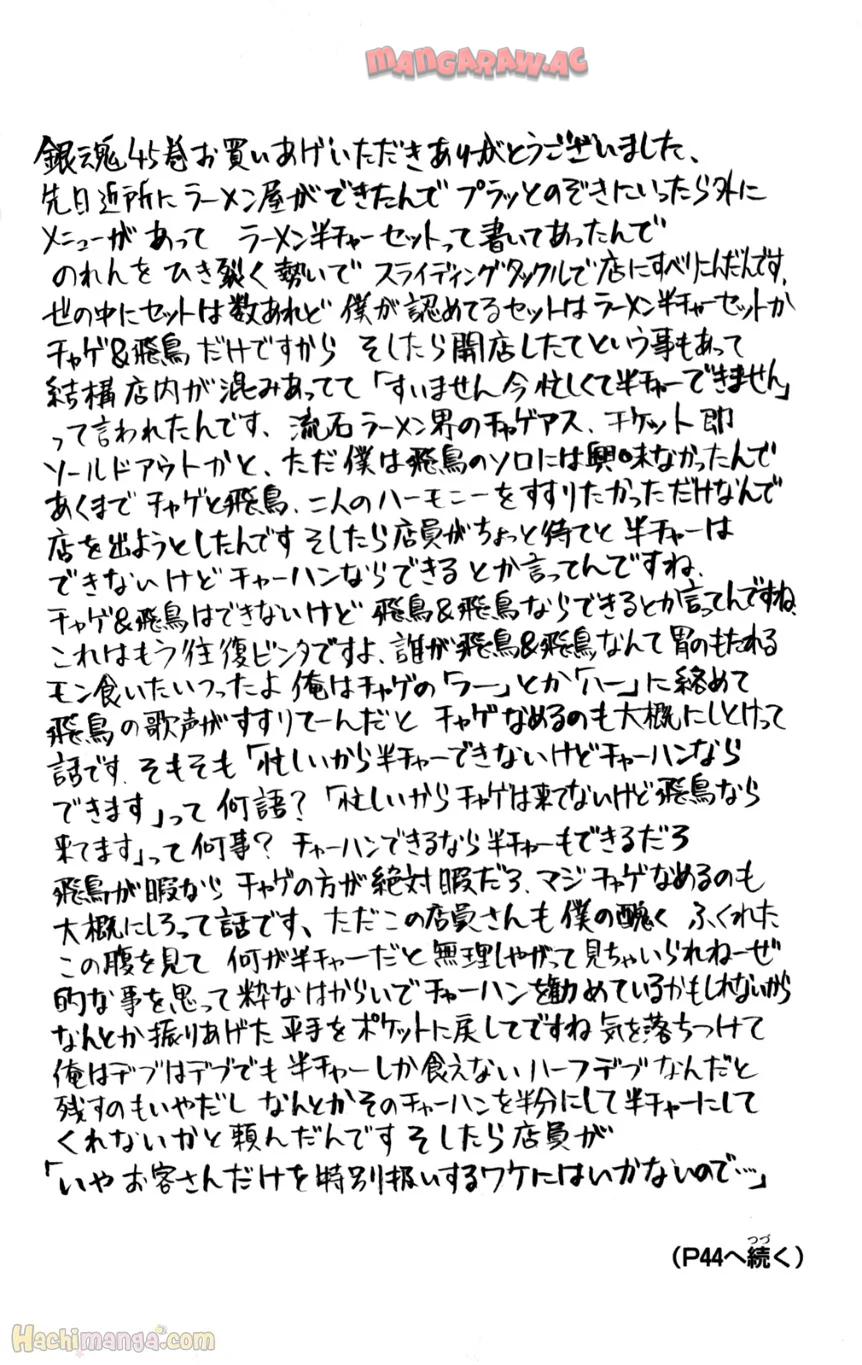 MANGARAW.AC
銀魂45巻お買いあげいただきありがとうございました、
先日近所にラーメン屋ができたんで プラッとのぞきにいったら外に
メニューがあって ラーメン半チャーセットって書いてあったんで
のれんを ひき裂く勢いで スライディングタックルで店にすべりこんだんです、
世の中にセットは数あれど 僕が認めてるセットは ラーメン半チャーセットか
チャゲ&飛鳥だけですから そしたら開店したてという事もあって
結構店内が混みあってて「すいません今忙しくて半チャーできません」
って言われたんです、流石ラーメン界のチャゲアス、チケット即
ソールドアウトかと、ただ僕は飛鳥のソロには興味なかったんで
あくまで チャゲと飛鳥、二人のハーモニーをすすりたかっただけなんで
店を出ようとしたんです そしたら店員がちょっと待てと 半チャーは
できないけど チャーハンならできる とか言ってんですね、
チャゲ&飛鳥はできないけど 飛鳥&飛鳥ならできるとか言ってんですね、
これはもう往復ビンタですよ、誰が飛鳥&飛鳥なんて胃のもたれる
モン食いたいつったよ 俺はチャゲの「ラー」とか「ハー」に絡めて
飛鳥の歌声がすすりてーんだと チャゲなめるのも大概にしとけって
話です、そもそも「忙しいから半チャーできないけどチャーハンなら
できます」って何語?「忙しいからチャゲは来てないけど飛鳥なら
来てます」って何事? チャーハンできるなら半チャーもできるだろ
飛鳥が暇なら チャゲの方が絶対暇だろ、マジチャゲなめるのも
大概にしろって話です、ただこの店員さんも僕の醜く ふくれた
この腹を見て 何が半チャーだと無理しやがって見ちゃいられねーぜ
的な事を思って粋なはからいでチャーハンを勧めているかもしれないから
なんとか振りあげた平手をポケットに戻してですね 気を落ちつけて
俺はデブはデブでも 半チャーしか食えないハーフデブなんだと
残すのもいやだし なんとかそのチャーハンを半分にして半チャーにして
くれないかと頼んだんです そしたら店員が
「いやお客さんだけを特別扱いするワケにはいかないので…」
(P44へ続く)
つづ
Hachimanga.com